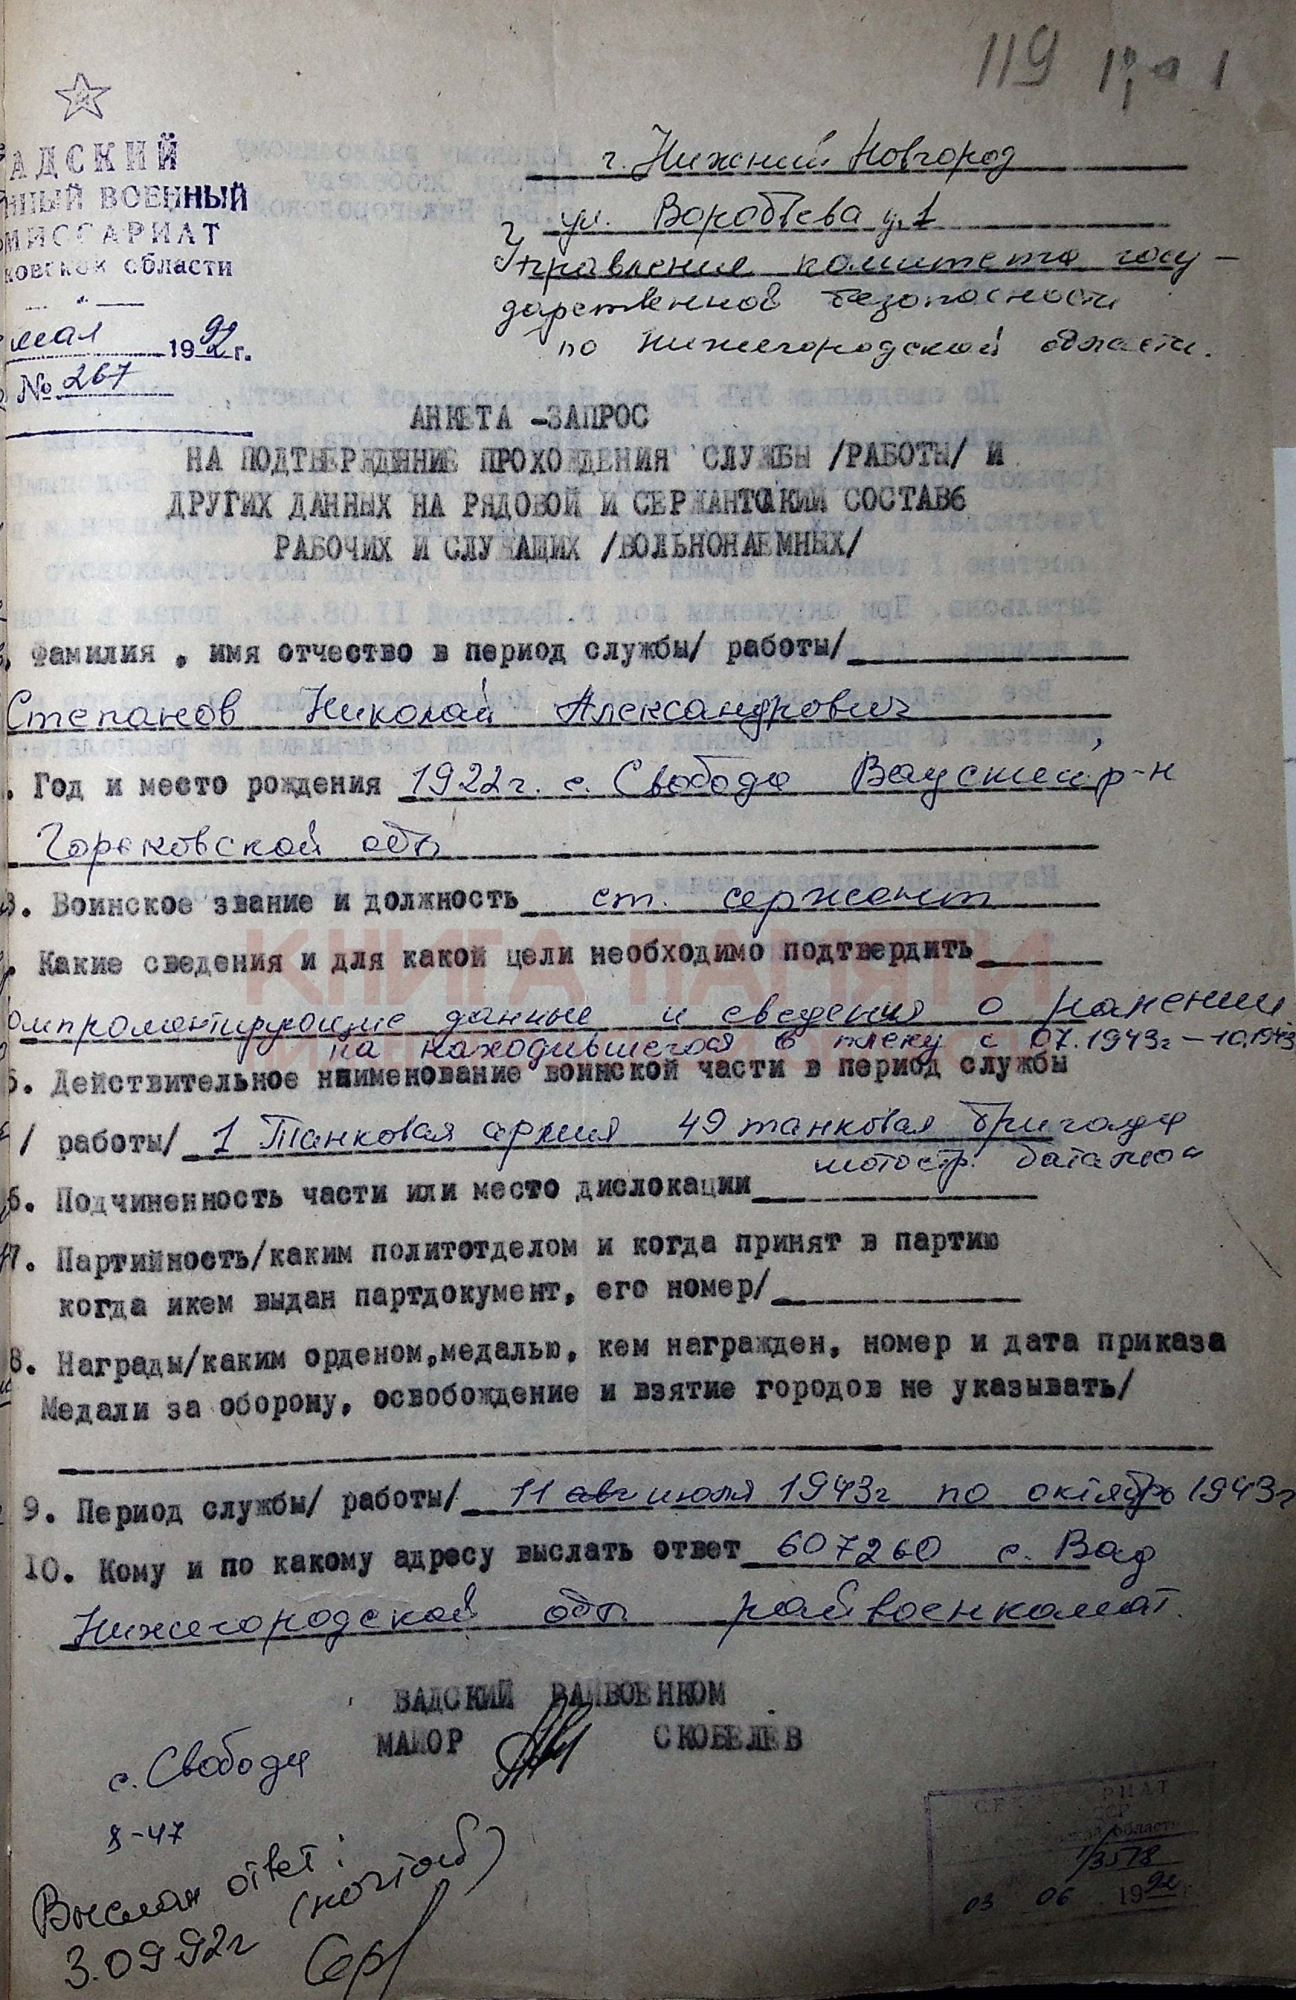 119
АДСКИЙ
ННЫЙ ВОЕННЫЙ
МИССАРИАТ
ковской области
мая 1992 г.
№ 267
г. Нижний Новгород
ул. Воробьева д. 1
Управление комитета госу-
дарственной безопасности
по Нижегородской области.
АНКЕТА -ЗАПРОС
НА ПОДТВЕРЖДЕНИЕ ПРОХОЖДЕНИЯ СЛУЖБЫ /РАБОТЫ/ И
ДРУГИХ ДАННЫХ НА РЯДОВОЙ И СЕРЖАНТСКИЙ СОСТАВ
РАБОЧИХ И СЛУЖАЩИХ /ВОЛЬНОНАЕМНЫХ/
. Фамилия , имя отчество в период службы/ работы/
Степанов Николай Александрович
. Год и место рождения 1922 г. с. Свобода р-н
Горьковской обл
3. Воинское звание и должность ст. сержант
. Какие сведения и для какой цели необходимо подтвердить
омпрометирующие данные и сведения о ранении
на находившегося в плену с 07.1943г – 10.1943
5. Действительное наименование воинской части в период службы
/ работы/ 1 Танковая армия 49 танковая бригада
мотостр. батальон
6. Подчиненность части или место дислокации
7. Партийность/каким политотделом и когда принят в партию
когда икем выдан партдокумент, его номер/
8. Награды/каким орденом,медалью, кем награжден, номер и дата приказа
Медали за оборону, освобождение и взятие городов не указывать/
9. Период службы/ работы/ 11 авг июля 1943г по октябрь 1943г
10. Кому и по какому адресу выслать ответ 607260 с. Вад
Нижегородской обл райвоенкомат.
ВАДСКИЙ РАЙВОЕНКОМ
МАЙОР СКОБЕЛЕВ
с. Свобода
8-47
Выслан ответ:
3.09 92г (почтой)
1/3578
03 06 1992
КНИГА ПАМЯТИ